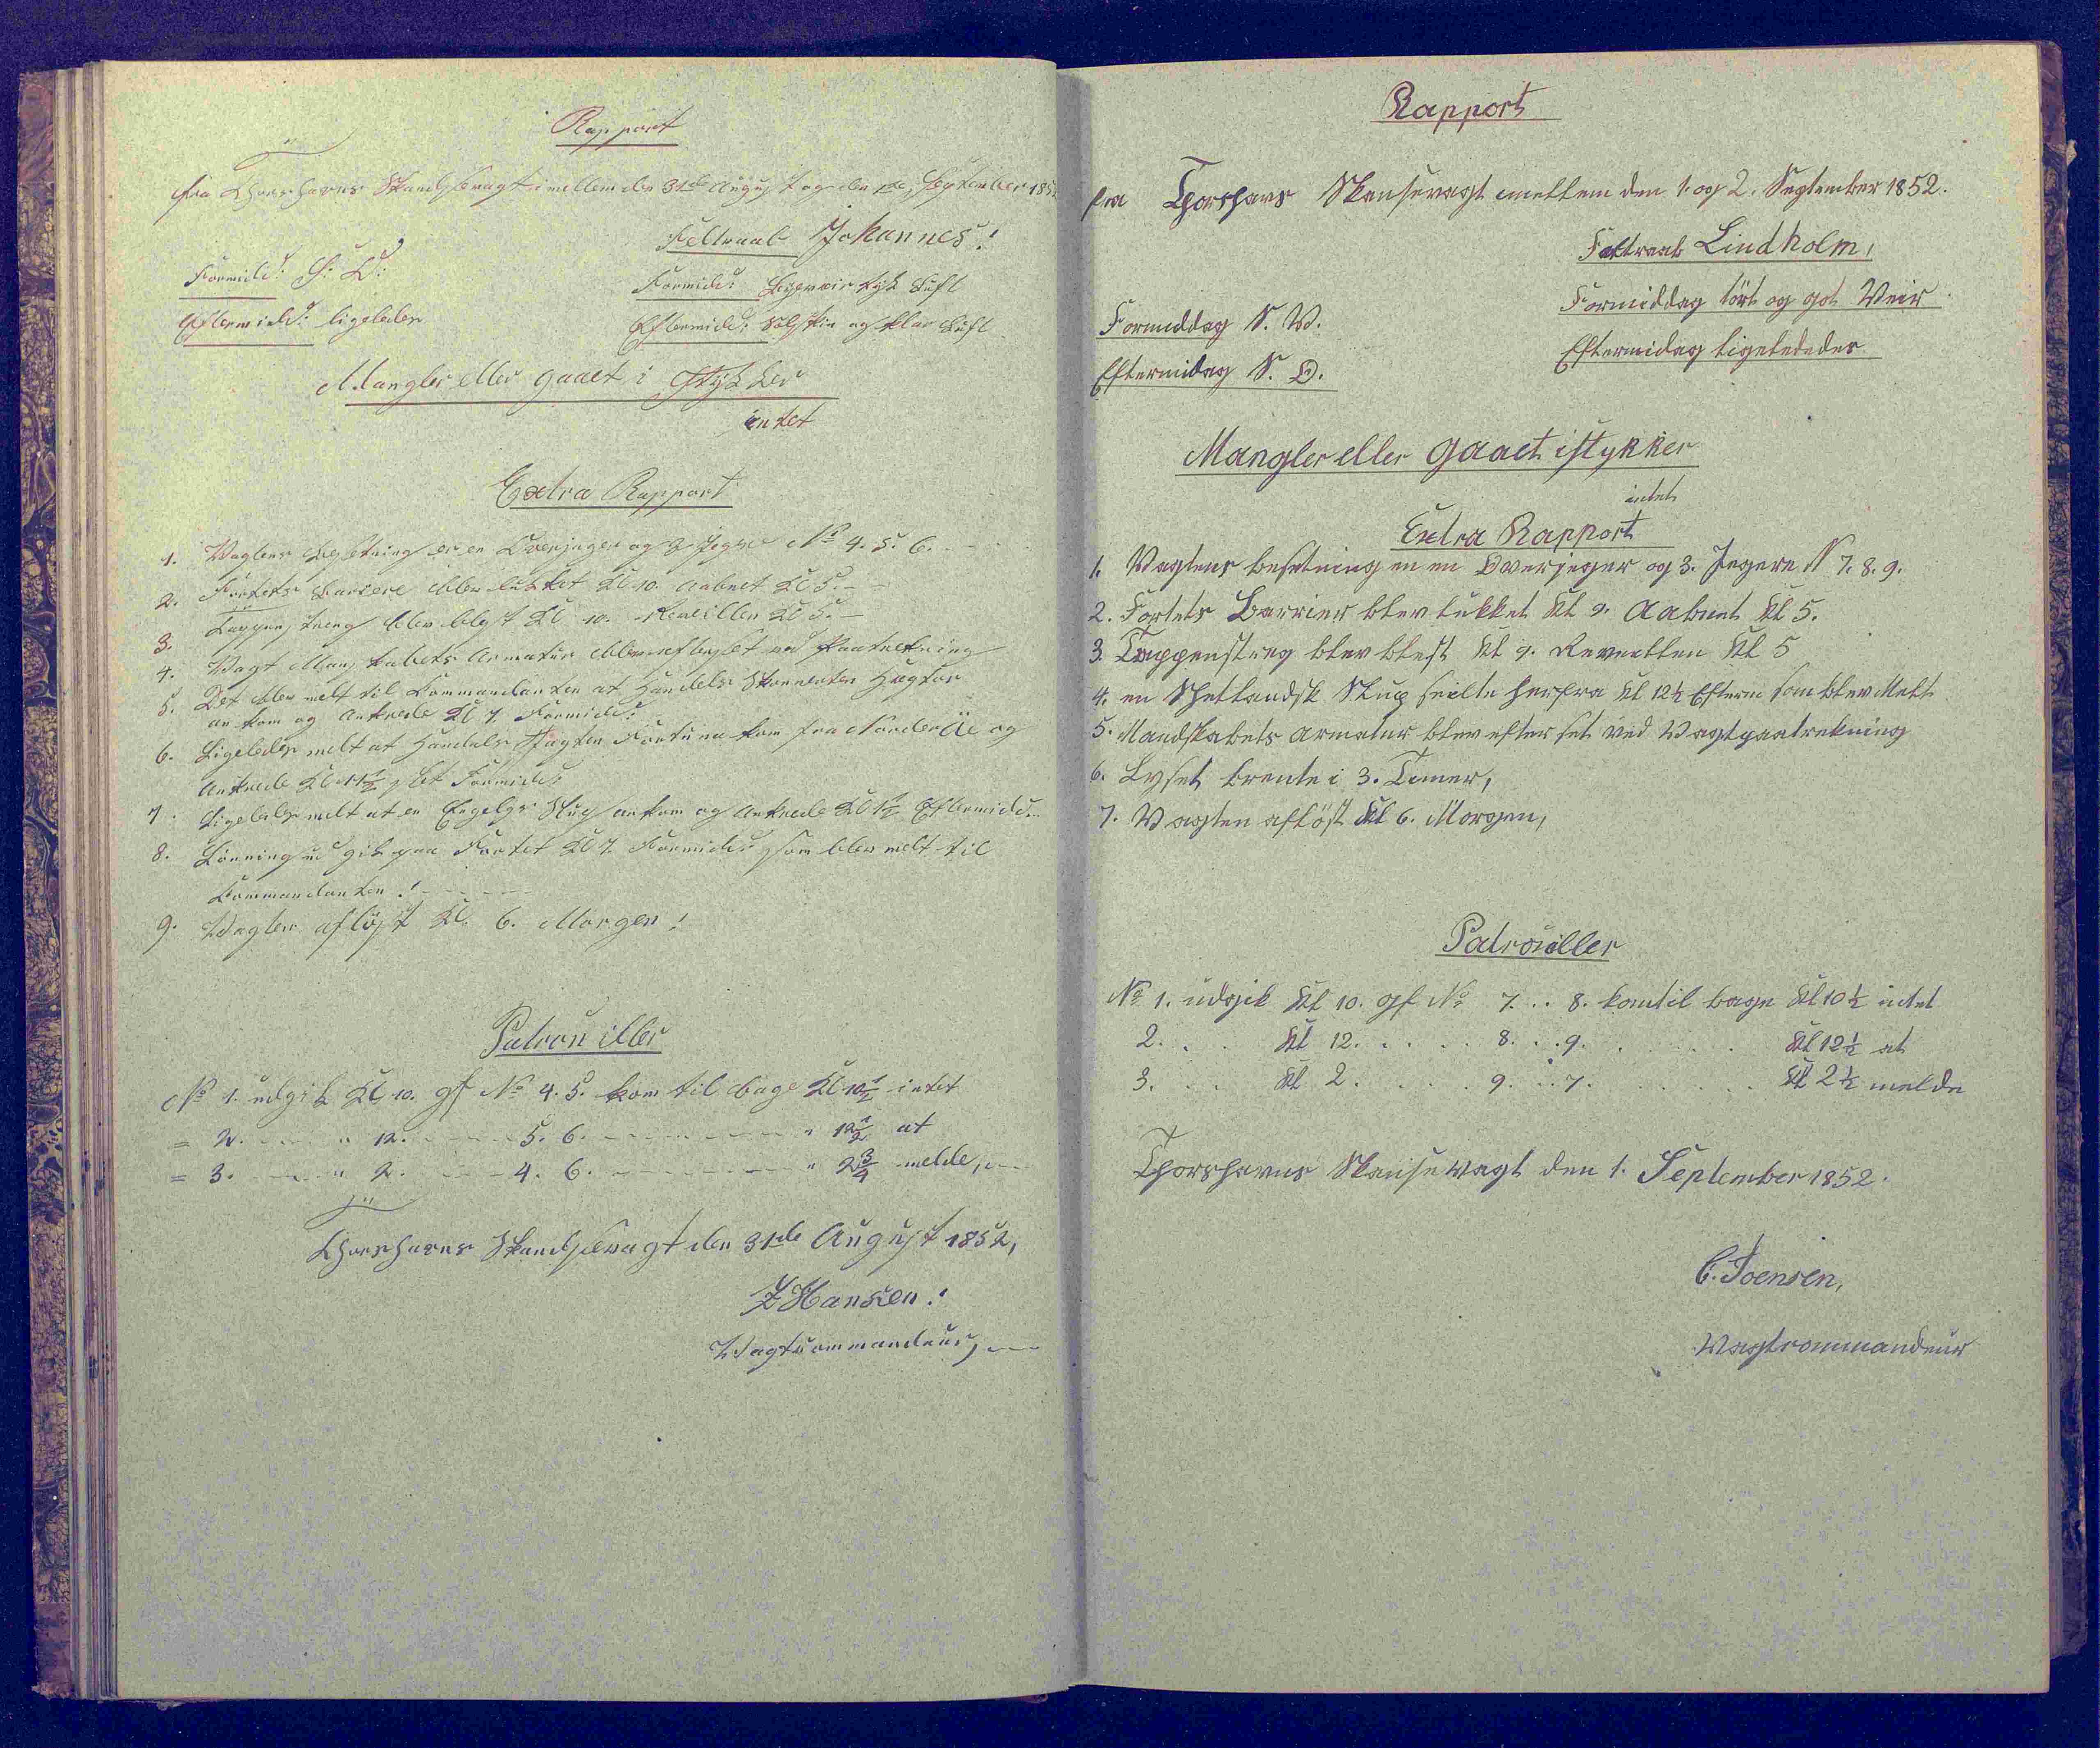 Rapport
fra Thorshavns Skandsevagt imellem den 31de August og den 1ste September 185
Feltraab Johannes!
Formidd: S: O:
Formidd: Regnveir tyk Luft
Eftermidd: ligeledes
Eftermidd: Solskin og klar Luft
Mangler eller gaaet i Stykker
intet
Extra Rapport
1. Vagtens Besetning er en Overjæger og 3 Jegere No 4. 5. 6.
2. Fortets Bariere blev lukket Kl 10. aabnet Kl 5.
3. Tappenstreg blev blest Kl 10. Reveillen Kl 5.
4. Vagt Mandskabets Armatur blev efterset ved Paatrekning
5. Det blev melt til Commandanten at Handels Skonnerten Hegtor
ankom og ankrede Kl 7. Formidd:
6. Ligeledes melt at Handels Jagten Fortuna kom fra Norder Öe og
ankrede Kl 11½ slet Formidd:
7. Ligeledes melt at en Engelsk Slup ankom og ankrede Kl 1½ Eftermidd:
8. Lönning ud gik paa Fortet Kl 7. Formidd: som blev melt til
Commandanten!
9. Vagten aflöst Kl. 6. Morgen!
Patrouiller
No 1. udgik Kl 10. gf No 4. 5. kom til bage Kl 10½ intet
= 2. " 12. 5. 6. " 12½ at
= 3. " 2. 4. 6. " 2¾ melde,
Thorshavns Skandsevagt den 31de August 1852,
Z Hansen!
Vagtcommandeur,
Rapport
fra Thorshavns Skansevagt imellem den 1. og 2. September 1852.
Feltraab Lindholm,
Formiddag tört og got Veir
Formiddag S. W.
Eftermidag ligeledes
Eftermidag S. O.
Mangler eller gaaet istykker
intet
Extra Rapport
1. Vagtens besetning en en Overjeger og 3. Jegere N 7. 8. 9.
2. Fortets Barrier blev lukket Kl 9. Aabnet Kl 5.
3. Tappenstreg blev blest Kl 9. Reveillen Kl 5
4. en Shetlandsk Slup seilte herfra Kl 12½ Efterm som blev Melt
5. Mandskabets armatur blev efter set ved Vagtpaatrekning
6. Lyset brente i 3. Timer,
7. Vagten aflöst Kl 6. Morgen,
Patrouiller
No 1. udgik Kl 10. gf No 7. . . 8. kom til bage Kl 10½ intet
2. . . Kl 12. . . . . 8. . . 9. . . . . Kl 12½ at
3. . . Kl 2. . . . . 9. . . 7. . . . . Kl 2½ melde
Thorshavns Skansevagt den 1. September 1852.
C. Joensen,
Vagtcommandeur